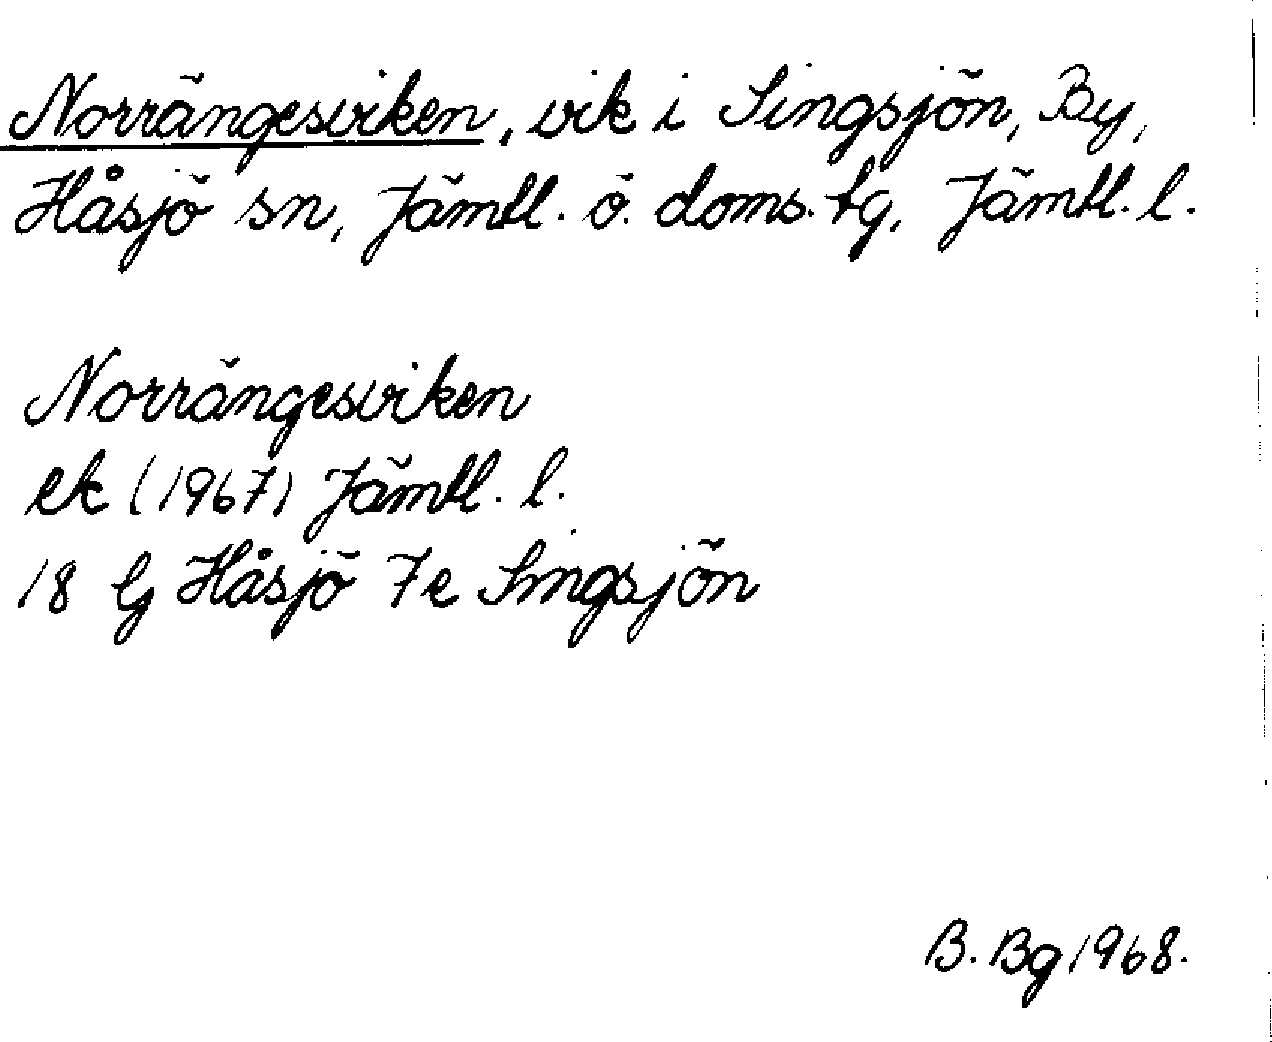 Norrängesviken, vik i Singsjön, By,
Håsjö sn, Jämtl. ö. doms. tg, Jämtl. l.
Norrängesviken
ek (1967) Jämtl. l.
18 G Håsjö 7e Singsjön
B. Bg 1968.